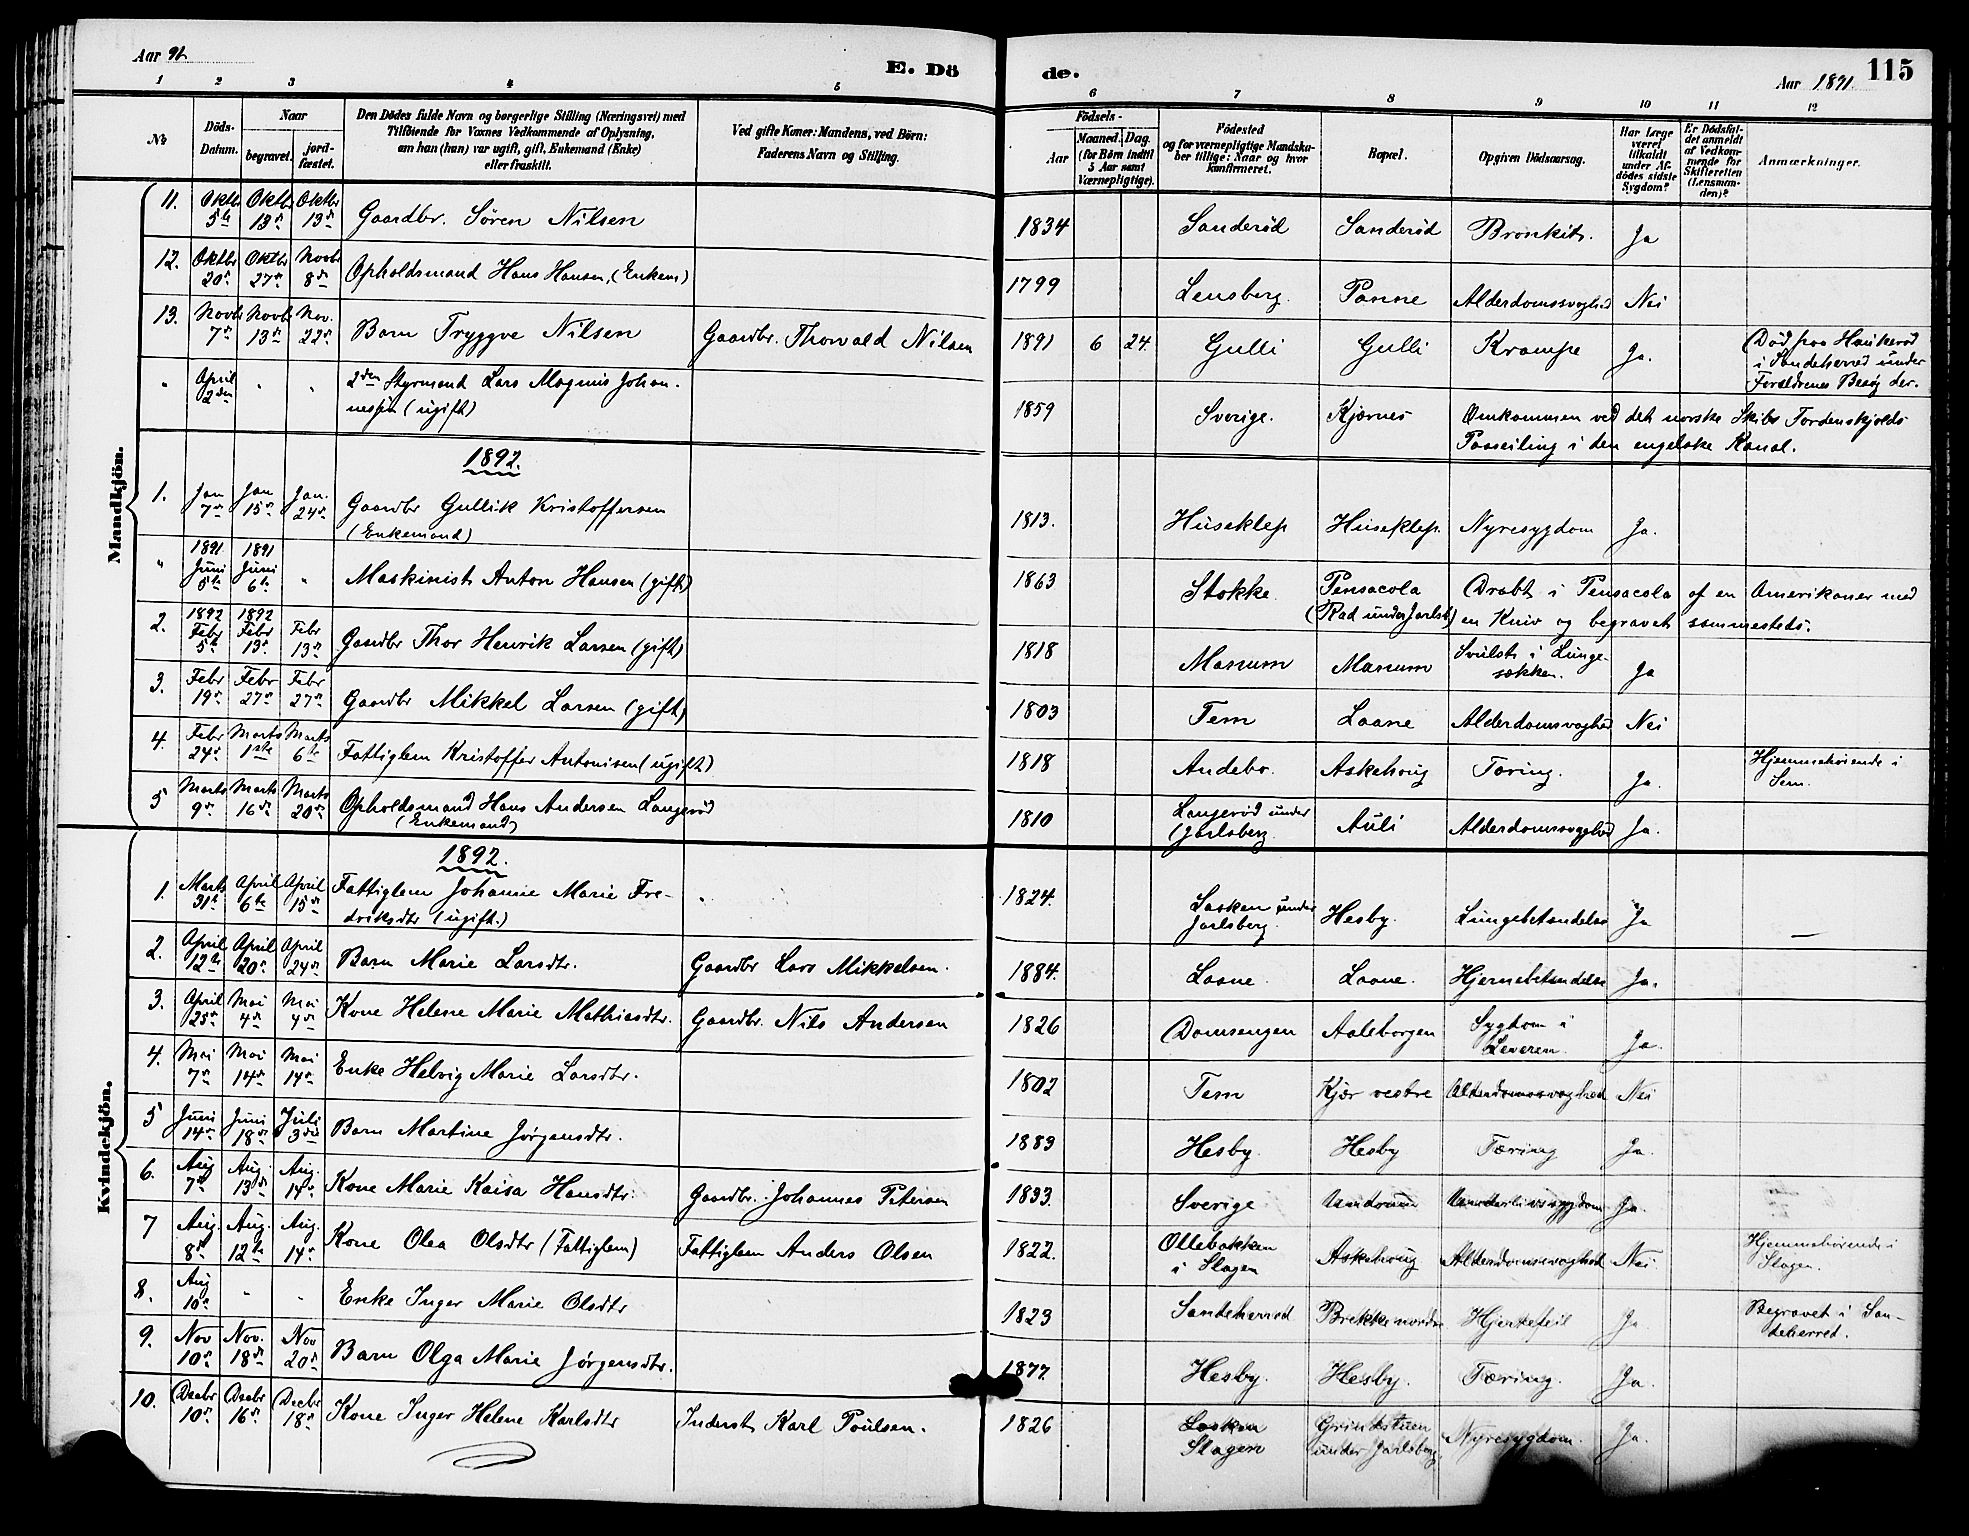 Aar 91.
E. Dö
de.
Aar 1891.
115
1 2 3 4 5 6 7 8 9 10 11 12
No
Döds-Datum.
Naar
begravet.
jord-fæstet.
Den Dödes fulde Navn og borgerlige Stilling (Næringsvei) med
Tilföiende for Voxnes Vedkommende af Oplysning,
om han (hun) var ugift, gift, Enkemand (Enke)
eller fraskilt.
Ved gifte Koner: Mandens, ved Börn:
Faderens Navn og Stilling.
Födsels-
Aar
Maaned. Dag.
(for Börn indtil
5 Aar samt
Værnepligtige).
Födested
og for værnepligtige Mandska-
ber tillige: Naar og hvor
konfirmeret.
Bopæl.
Opgiven Dödsaarsag.
Har Læge
været
tilkaldt
under Af-
dödes sidste
Sygdom?
Er Dödsfal-
det anmeldt
af Vedkom-
mende for
Skifteretten
(Lensman-
den)?
Anmærkninger.
Mandkjön.
11. Oktbr 5te Oktbr 13de Oktbr 13de Gaardbr. Søren Nilsen 1834 Sanderød Sanderød Bronkit. Ja
12. Oktbr 20de Oktbr 27de Novbr 8de Opholdsmand Hans Hansen, (Enkem) 1799 Lensberg. Panne Alderdomssvaghed Nei
13. Novbr 7de Novbr 13de Nov. 22de Barn Tryggve Nilsen Gaardbr. Thorvald Nilsen 1891 6 24. Gulli Gulli Krampe Ja. Død paa Haukerød
i Sandeherred under
Forældrenes Besøg der.
" April 2den " " 2den Styrmand Lars Magnus Johan-
nessen (ugift) 1859 Sverige. Kjærnes Omkommen ved det norske Skibs Tordenskjolds
Paaseiling i den engelske Kanal.
1892.
1. Jan 7de Jan 15de Jan. 24de Gaardbr Gullik Kristoffersen
(Enkemand) 1813. Huseklep Huseklep. Nyresygdom Ja.
" 1891 Juni 5te 1891 Juni 6te " Maskinist Anton Hansen (gift) 1863 Stokke Pensacola
(Rad under Jarlsb) Dræbt i Pensacola af en Amerikaner med
en Kniv og begravet sammesteds.
2. 1892 Febr 5te 1892 Febr 13de Febr 13de Gaardbr Thor Henrik Larsen (gift) 1818 Manum Manum Svulst i Lunge-
sækken. Ja
3. Febr 19de Febr 27de Febr 27de Gaardbr Mikkel Larsen (gift) 1803 Tem Laane Alderdomssvaghed Nei
4. Febr 24de Marts 1ste Marts 6te Fattiglem Kristoffer Antonisen (ugift) 1818 Andebo. Askehoug Tæring. Ja. Hjemmehørende i
Sem.
5 Marts 9de Marts 16de Marts 20de Opholdsmand Hans Andersen Langerød
(Enkemand) 1810 Langerød under
Jarlsberg Auli Alderdomssvaghed Ja.
Kvindekjön.
1892.
1. Marts 31te April 6te April 15de Fattiglem Johanne Marie Fre-
driksdtr (ugift.) " 1824. Lasken under
Jarlsberg. Hesby. Lungebetændelse Ja
2. April 12te April 20de April 24de Barn Marie Larsdtr. Gaardbr Lars Mikkelsen. 1884. Laane. Laane. Hjernebetændelse Ja.
3. April 25de Mai 4de Mai 4de Kone Helene Marie Mathiasdtr. Gaardbr. Nils Andersen 1826 Domsengen Aaleborgen Sygdom i
Leveren. Ja.
4. Mai 7de Mai 14de Mai 14de Enke Helvig Marie Larsdtr. 1802 Tem Kjær vestre Alderdomssvaghed Nei
5 Juni 14de Juni 18de Juli 3die Barn Martine Jørgensdtr. 1883 Hesby. Hesby Tæring Ja.
6. Aug 7de Aug. 13de Aug. 14de Kone Marie Kaisa Hansdtr. Gaardbr. Johannes Petersen 1833 Sverige Underlivssygdom Ja.
7 Aug. 8de Aug. 12te Aug. 14de Kone Olea Olsdtr (Fattiglem) Fattiglem Anders Olsen 1822. Ollebakken
i Slagen Askehoug Alderdomssvaghed Nei Hjemmehørende i
Slagen.
8. Aug 10de " " Enke Inger Marie Olsdtr 1823 Sandeherred Brekke nordre Hjertefeil Ja. Begravet i San-
deherred.
9. Nov 10de Nov. 18de Nov 20de Barn Olga Marie Jørgensdtr. 1877 Hesby. Hesby. Tæring. Ja.
10. Decbr 10de Decbr 16de Decbr 18de Kone Inger Helene Karlsdtr Inderst Karl Poulsen. 1826 Lasken
Slagen Grindstuen
under Jarlsberg Nyresygdom. Ja.